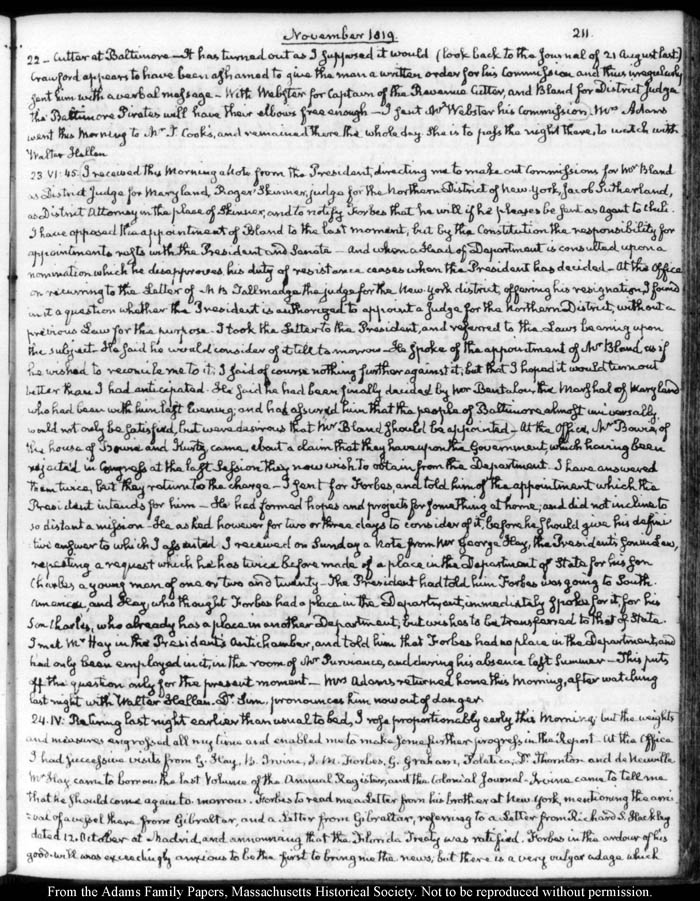 November 1819.
211.
22 – Cutter at Baltimore – It has turned out as I supposed it would (look back to the Journal of 21 August last)
Crawford appears to have been ashamed to give the man a written order for his Commission and thus irregularly
sent him with a verbal message – With Webster for Captain of the Revenue Cutter, and Bland for District Judge
the Baltimore Pirates will have their elbows free enough – I sent Mr Webster his Commission, Mrs Adams
went this Morning to Mr. J. Cook's, and remained there the whole day. She is to pass the night there, to watch with
Walter Hellen
23 VI:45. I received this Morning a Note from the President, directing me to make out Commissions for Bland
as District Judge for Maryland, Roger Skinner, judge for the Northern District of New York, Jacob Sutherland,
as District Attorney in the place of Skinner, and to notify Forbes that he will if he pleases be sent as Agent to Chili.
I have opposed this appointment of Bland to the last moment; but by the Constitution the responsibility for
appointments rests with the President and Senate – And when a Head of Department is consulted upon a
nomination which he disapproves his duty of resistance ceases when the President has decided – At the Office
on recurring to the Letter of M B Tallmadge the judge for the New York district, offering his resignation, I found
in it a question whether the President is authorized to appoint a Judge for the Northern District, without a
previous Law for the purpose. I took the Letter to the President, and referred to the Laws bearing upon
the subject. He said he would consider of it till to morrow – He spoke of the appointment of Mr Bland, as if
he wished to reconcile me to it; I said of course nothing further against it; but that I hoped it would turn out
better than I had anticipated. He said he had been finally decided by Bentalou, the Marshal of Maryland
who had been with him last Evening; and had assured him that the people of Baltimore almost universally,
would not only be satisfied, but were desirous that Mr Bland should be appointed – At the Office, Mr Bowie, of
the house of Bowie and Kurtz, came, about a claim that they have upon the Government, which having been
rejected in Congress at the last Session they now wish to obtain from the Department. I have answered
them twice, but they return to the charge – I sent for Forbes, and told him of the appointment which the
President intends for him – He had formed hopes and projects for something at home, and did not incline to
so distant a mission – He asked however for two or three days to consider of it, before he should give his defini-
tive answer to which I assented. I received on Sunday a Note from Mr George Hay, the President's Son in law,
repeating a request which he has twice before made of a place in the Department of State for his son
Charles a young man of one or two and twenty – The President had told him Forbes was going to South
America, and Hay, who thought Forbes had a place in the Department, immediately spoke for it, for his
Son Charles, who already has a place in another Department, but wishes to be transferred to that of State.
I met Mr Hay in the President's Antichamber, and told him that Forbes had no place in the Department, and
had only been employed in it, in the room of Mr Purviance, and during his absence last Summer – This puts
off the question only for the present moment – Mrs Adams returned home this Morning, after watching
last night with Walter Hellen. Dr. Sim, pronounces him now out of danger.
24. IV: Retiring last night earlier than usual to bed, I rose proportionably early this Morning; but the weights
and measures engrossed all my time and enabled me to make some further progress in the Report – At the Office
I had successive visits from G. Hay, B. Irvine, J. M. Forbes, G. Graham, Poletica, Dr. Thornton and de Neuville
Mr Hay came to borrow the last Volume of the Annual Register, and the Colonial Journal – Irvine came to tell me
that he should come again to morrow. Forbes to read me a Letter from his brother at New York, mentioning the arri-
val of a vessel there from Gibraltar, and a Letter from Gibraltar, referring to a Letter from Richard S. Hackley
dated 12. October at Madrid, and announcing that the Florida Treaty was ratified. Forbes in the ardour of his
good-will was exceedingly anxious to be the first to bring me the news, but there is a very vulgar adage which
From the Adams Family Papers, Massachusetts Historical Society. Not to be reproduced without permission.